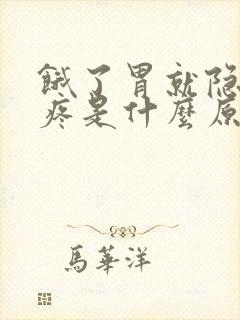 餓了胃就隐
疼是什麼原
馬華洋